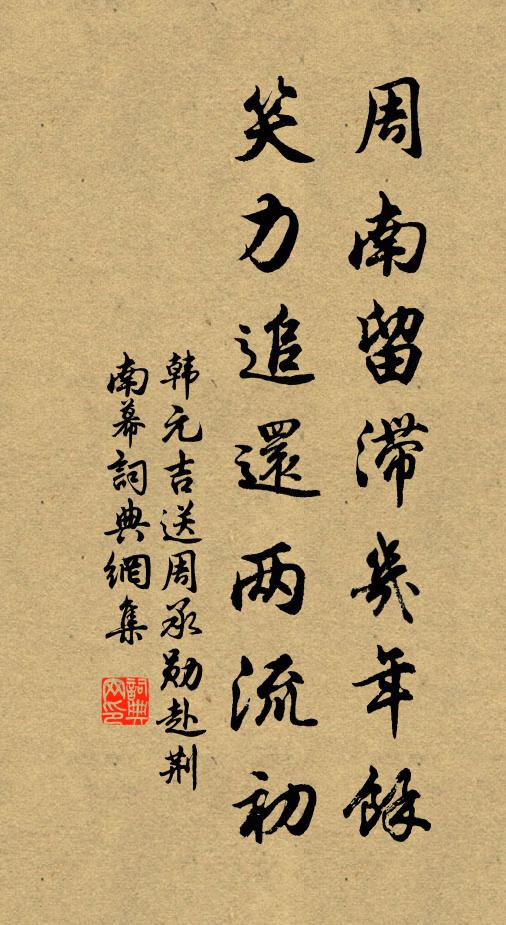 周南留滞幾年餘
笑力追還两流初
韩元吉送周承勋赴荆
南幕詞典網集
詞典
网印